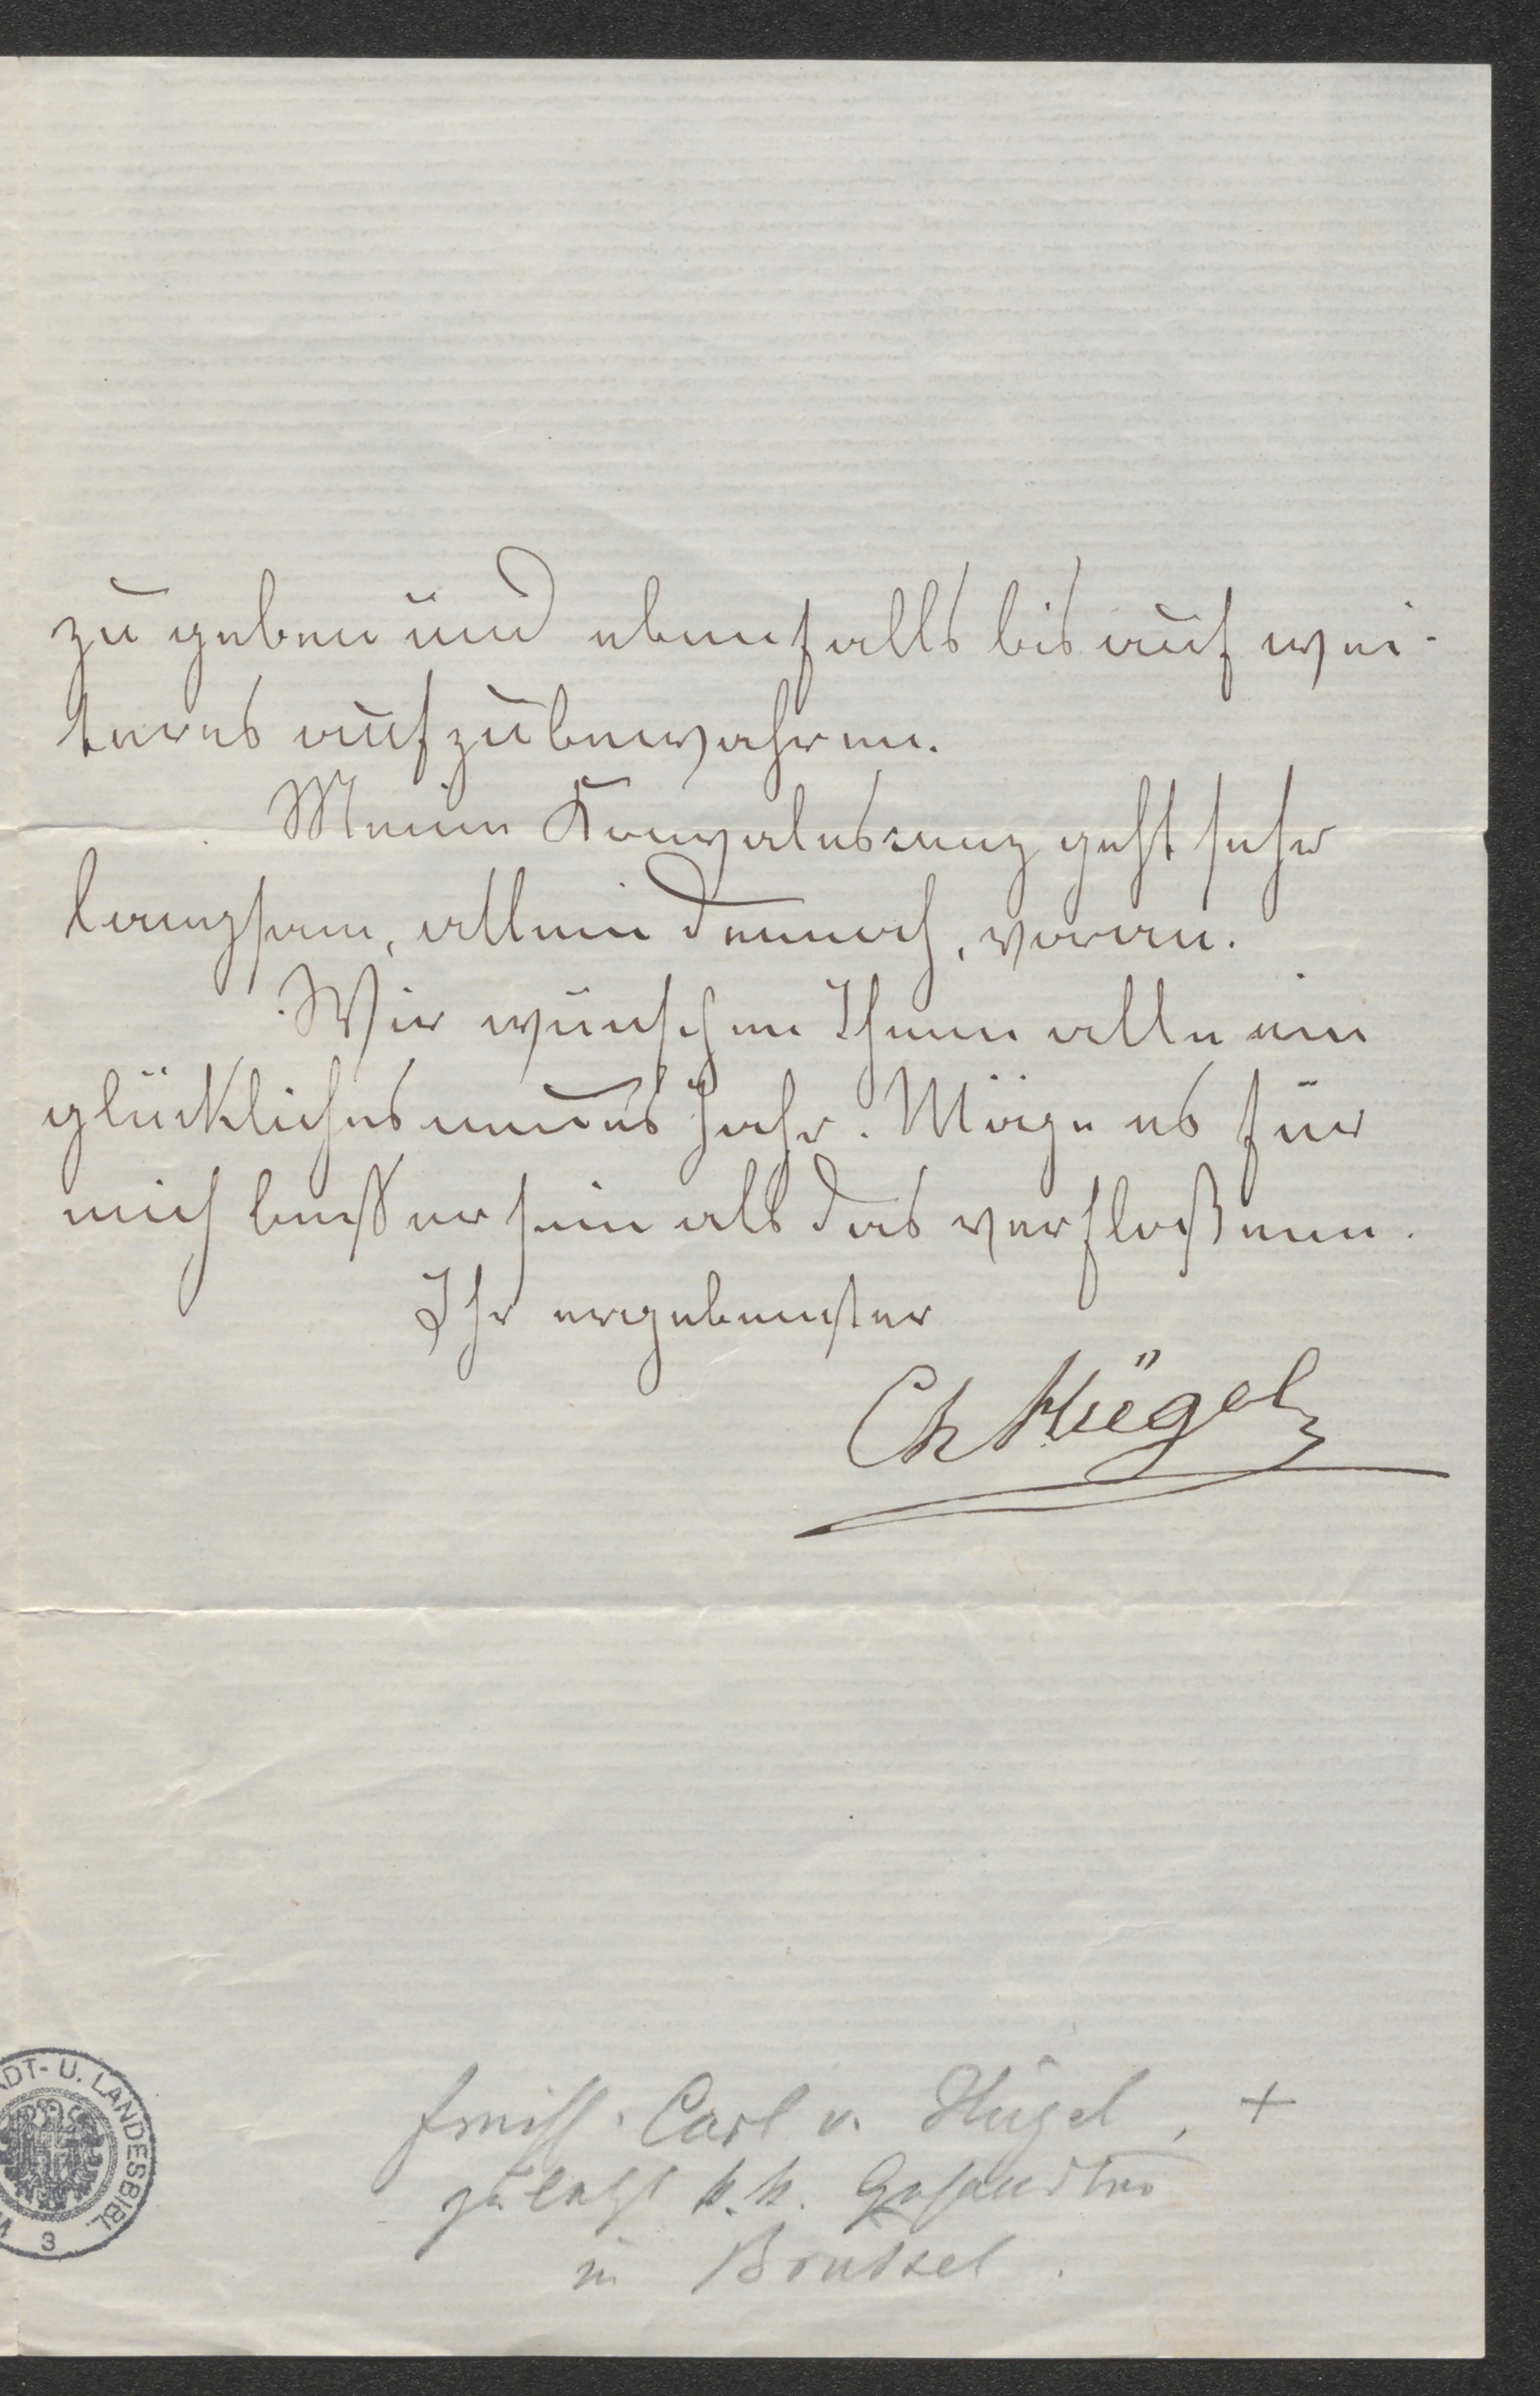 zu geben und ebenfalls bis auf wei-
teres aufzubewahren.
Meine Konvaleszenz geht sehr
langsam, allein dennoch, voran.
Wir wünschen Ihnen alle ein
glückliches neues Jahr. Möge es für
mich beßer sein als das verfloßene.
Ihr ergebenster
Ch Hügel
Freih. Carl v. Hügel, +
zuletzt k. k. Gesandter
in Brüssel.
ADT- U. LANDESBIBL.
W
3